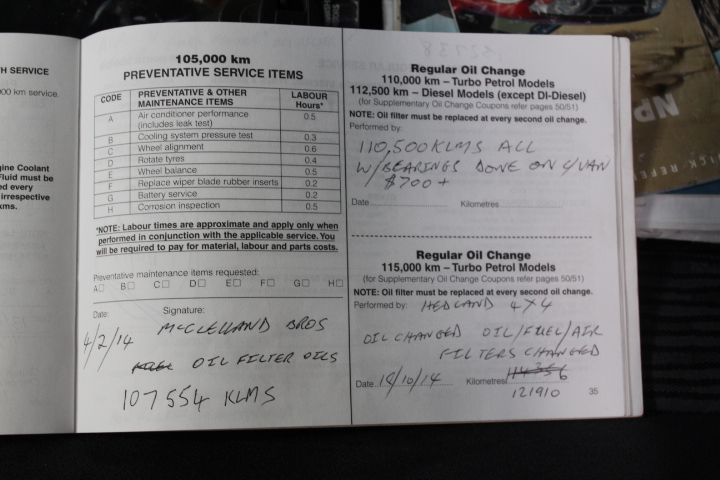 H SERVICE
00 km service.
gine Coolant
Fluid must be
ed every
irrespective
kms.
105,000 km
PREVENTATIVE SERVICE ITEMS
CODE PREVENTATIVE & OTHER MAINTENANCE ITEMS LABOUR Hours*
A Air conditioner performance (includes leak test) 0.5
B Cooling system pressure test 0.3
C Wheel alignment 0.6
D Rotate tyres 0.4
E Wheel balance 0.5
F Replace wiper blade rubber inserts 0.2
G Battery service 0.2
H Corrosion inspection 0.5
*NOTE: Labour times are approximate and apply only when
performed in conjunction with the applicable service. You
will be required to pay for material, labour and parts costs.
Preventative maintenance items requested:
A☐ B☐ C☐ D☐ E☐ F☐ G☐ H☐
Date: Signature:
4/2/14 McCLELLAND BROS
OIL FILTER OILS
107554 KLMS
Regular Oil Change
110,000 km – Turbo Petrol Models
112,500 km – Diesel Models (except DI-Diesel)
(for Supplementary Oil Change Coupons refer pages 50/51)
NOTE: Oil filter must be replaced at every second oil change.
Performed by:
110,500 KLMS ALL
W/BEARINGS DONE ON C/VAN
$700+
Date Kilometres
Regular Oil Change
115,000 km – Turbo Petrol Models
(for Supplementary Oil Change Coupons refer pages 50/51)
NOTE: Oil filter must be replaced at every second oil change.
Performed by: HEDLAND 4X4
OIL CHANGED OIL/FUEL/AIR
FILTERS CHANGED
Date 18/10/14 Kilometres 114356
121910
35
NP